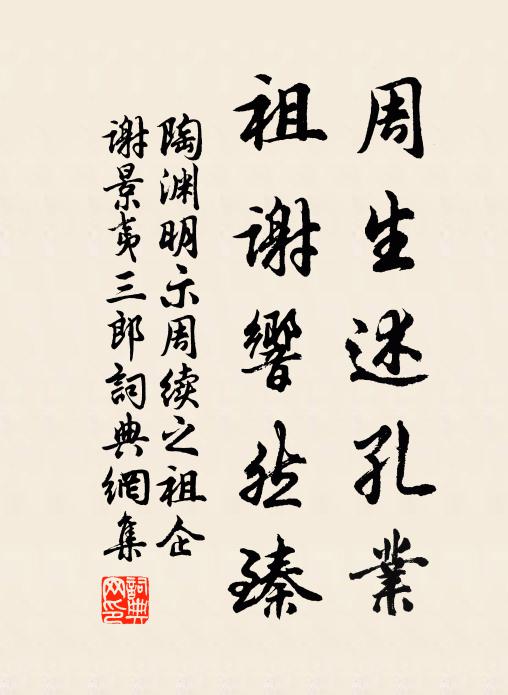 周生述孔業
祖謝響然臻
陶渊明示周续之祖企
谢景夷三郎詞典網集
詞典網印